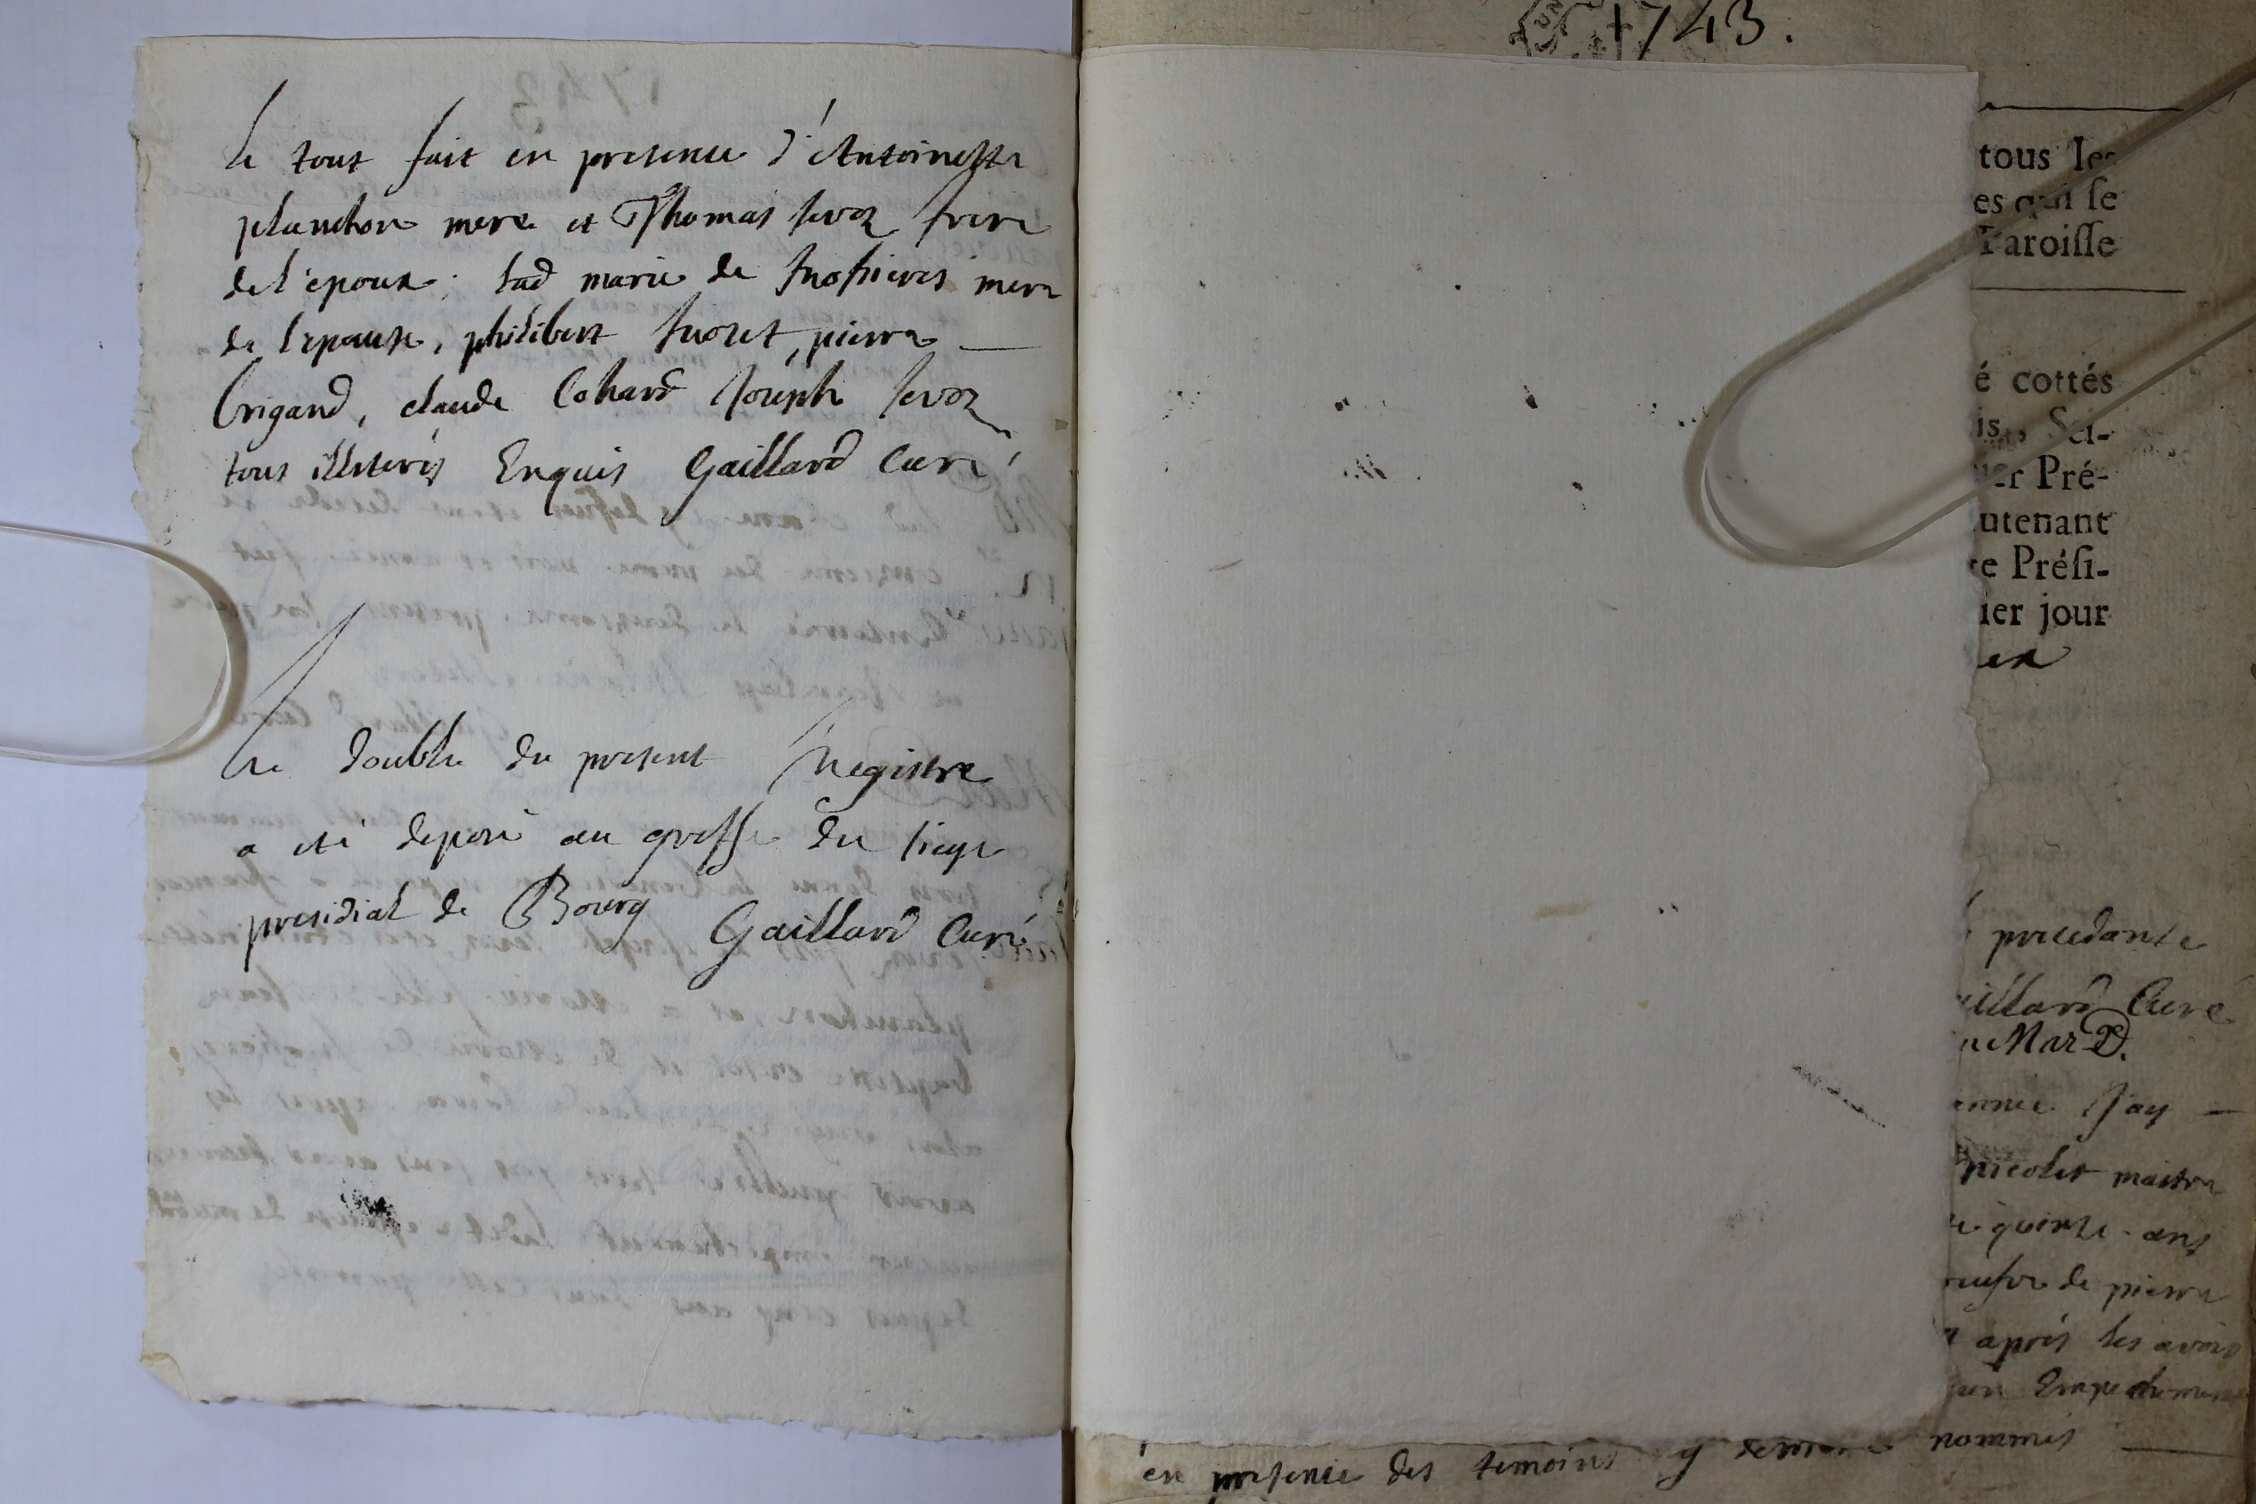 le tout fait en presence d'Antoinette
planchon mere et Thomas sevoz frere
de l'epoux; lad marie de mere
de l'epouse, philibert pierre
Brigand, claude Cohard Joseph sevoz
tous illiterés Enquis Gaillard Curé
Le double du present Registre
a eté deposé au greffe du siege
presidial de Bourg Gaillard Curé
1743.
tous les
es qui se
Paroisse
é cottés
is, Sei-
er Pré-
utenant
e Prési-
ier jour
precedante
aillard Curé
annee Jay
nicolet maitre
quinze ans
de pierre
après les avoir
Empechement
en presence des temoins y nommés